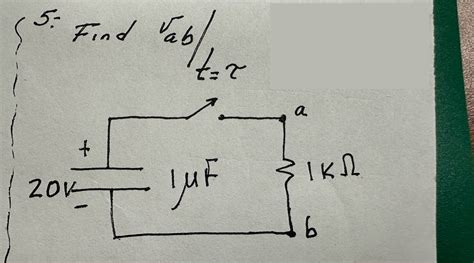 5.-
Find Vab/
t=τ
a
+
20V
-
1μF
1KΩ
b